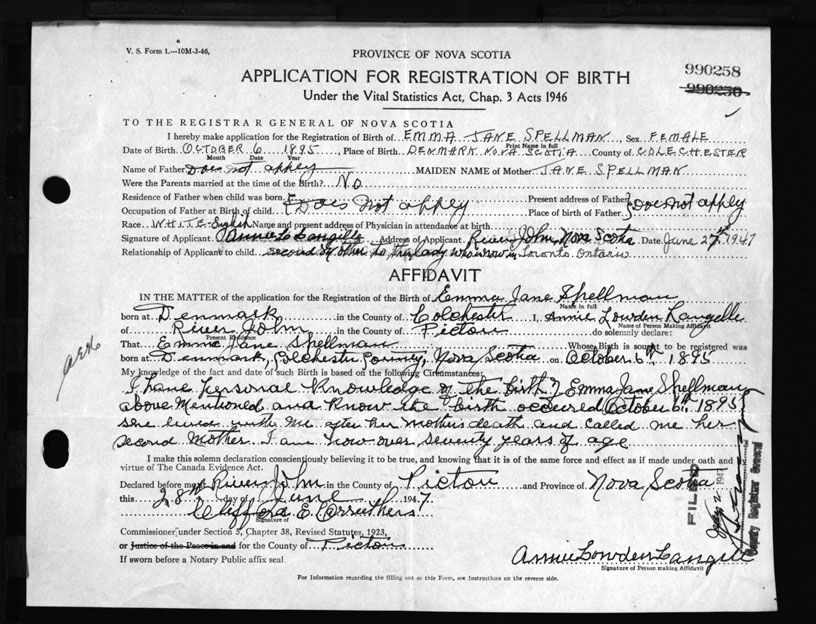 V. S. Form 1.—10M-3-46.
PROVINCE OF NOVA SCOTIA
990258
APPLICATION FOR REGISTRATION OF BIRTH
990250
Under the Vital Statistics Act, Chap. 3 Acts 1946
TO THE REGISTRAR GENERAL OF NOVA SCOTIA
I hereby make application for the Registration of Birth of EMMA JANE SPELLMAN, Sex FEMALE
Print Name in full
Date of Birth OCTOBER 6 1895, Place of Birth DENMARK NOVA SCOTIA County of COLECHESTER
Month Date Year
Name of Father Does not appley MAIDEN NAME of Mother JANE SPELLMAN
Were the Parents married at time of the Birth? No
Residence of Father when child was born Present address of Father
Does Not apply Does not apply
Occupation of Father at Birth of child Place of birth of Father
Race WHITE- English Name and present address of Physician in attendance at birth
Signature of Applicant Annie L Langille Address of Applicant River John, Nova Scotia Date June 27th 1947
Relationship of Applicant to child second Mother to this lady who now in Toronto Ontario
AFFIDAVIT
IN THE MATTER of the application for the Registration of the Birth of Emma Jane Spellman
Name in full
born at Denmark in the County of Colchester I, Annie Lowden Langille
Name of Person Making Affidavit
of River John in the County of Pictou do solemnly declare:
Present Residence
That Emma Jane Spellman Whose Birth is sought to be registered was
born at Denmark, Colchester County, Nova Scotia on October 6th 1895
My knowledge of the fact and date of such Birth is based on the following Circumstances:
I have personal knowledge of the birth of Emma Jane Spellman
above mentioned and know the birth occured October 6th 1895
she lived with me after her mothers death and called me her
second mother. I am now over seventy years of age
I make this solemn declaration conscientiously believing it to be true, and knowing that it is of the same force and effect as if made under oath and
virtue of The Canada Evidence Act.
Declared before me at River John in the County of Pictou and Province of Nova Scotia
this 28th day of June 1947
Clifford E Carruthers
Signature of
Commissioner under Section 5, Chapter 38, Revised Statutes, 1923,
or Justice of the Peace in and for the County of Pictou
If sworn before a Notary Public affix seal
Annie Lowden Langille
Signature of Person making Affidavit
For Information regarding the filling out of this Form, see Instructions on the reverse side.
FILED
Deputy Registrar General